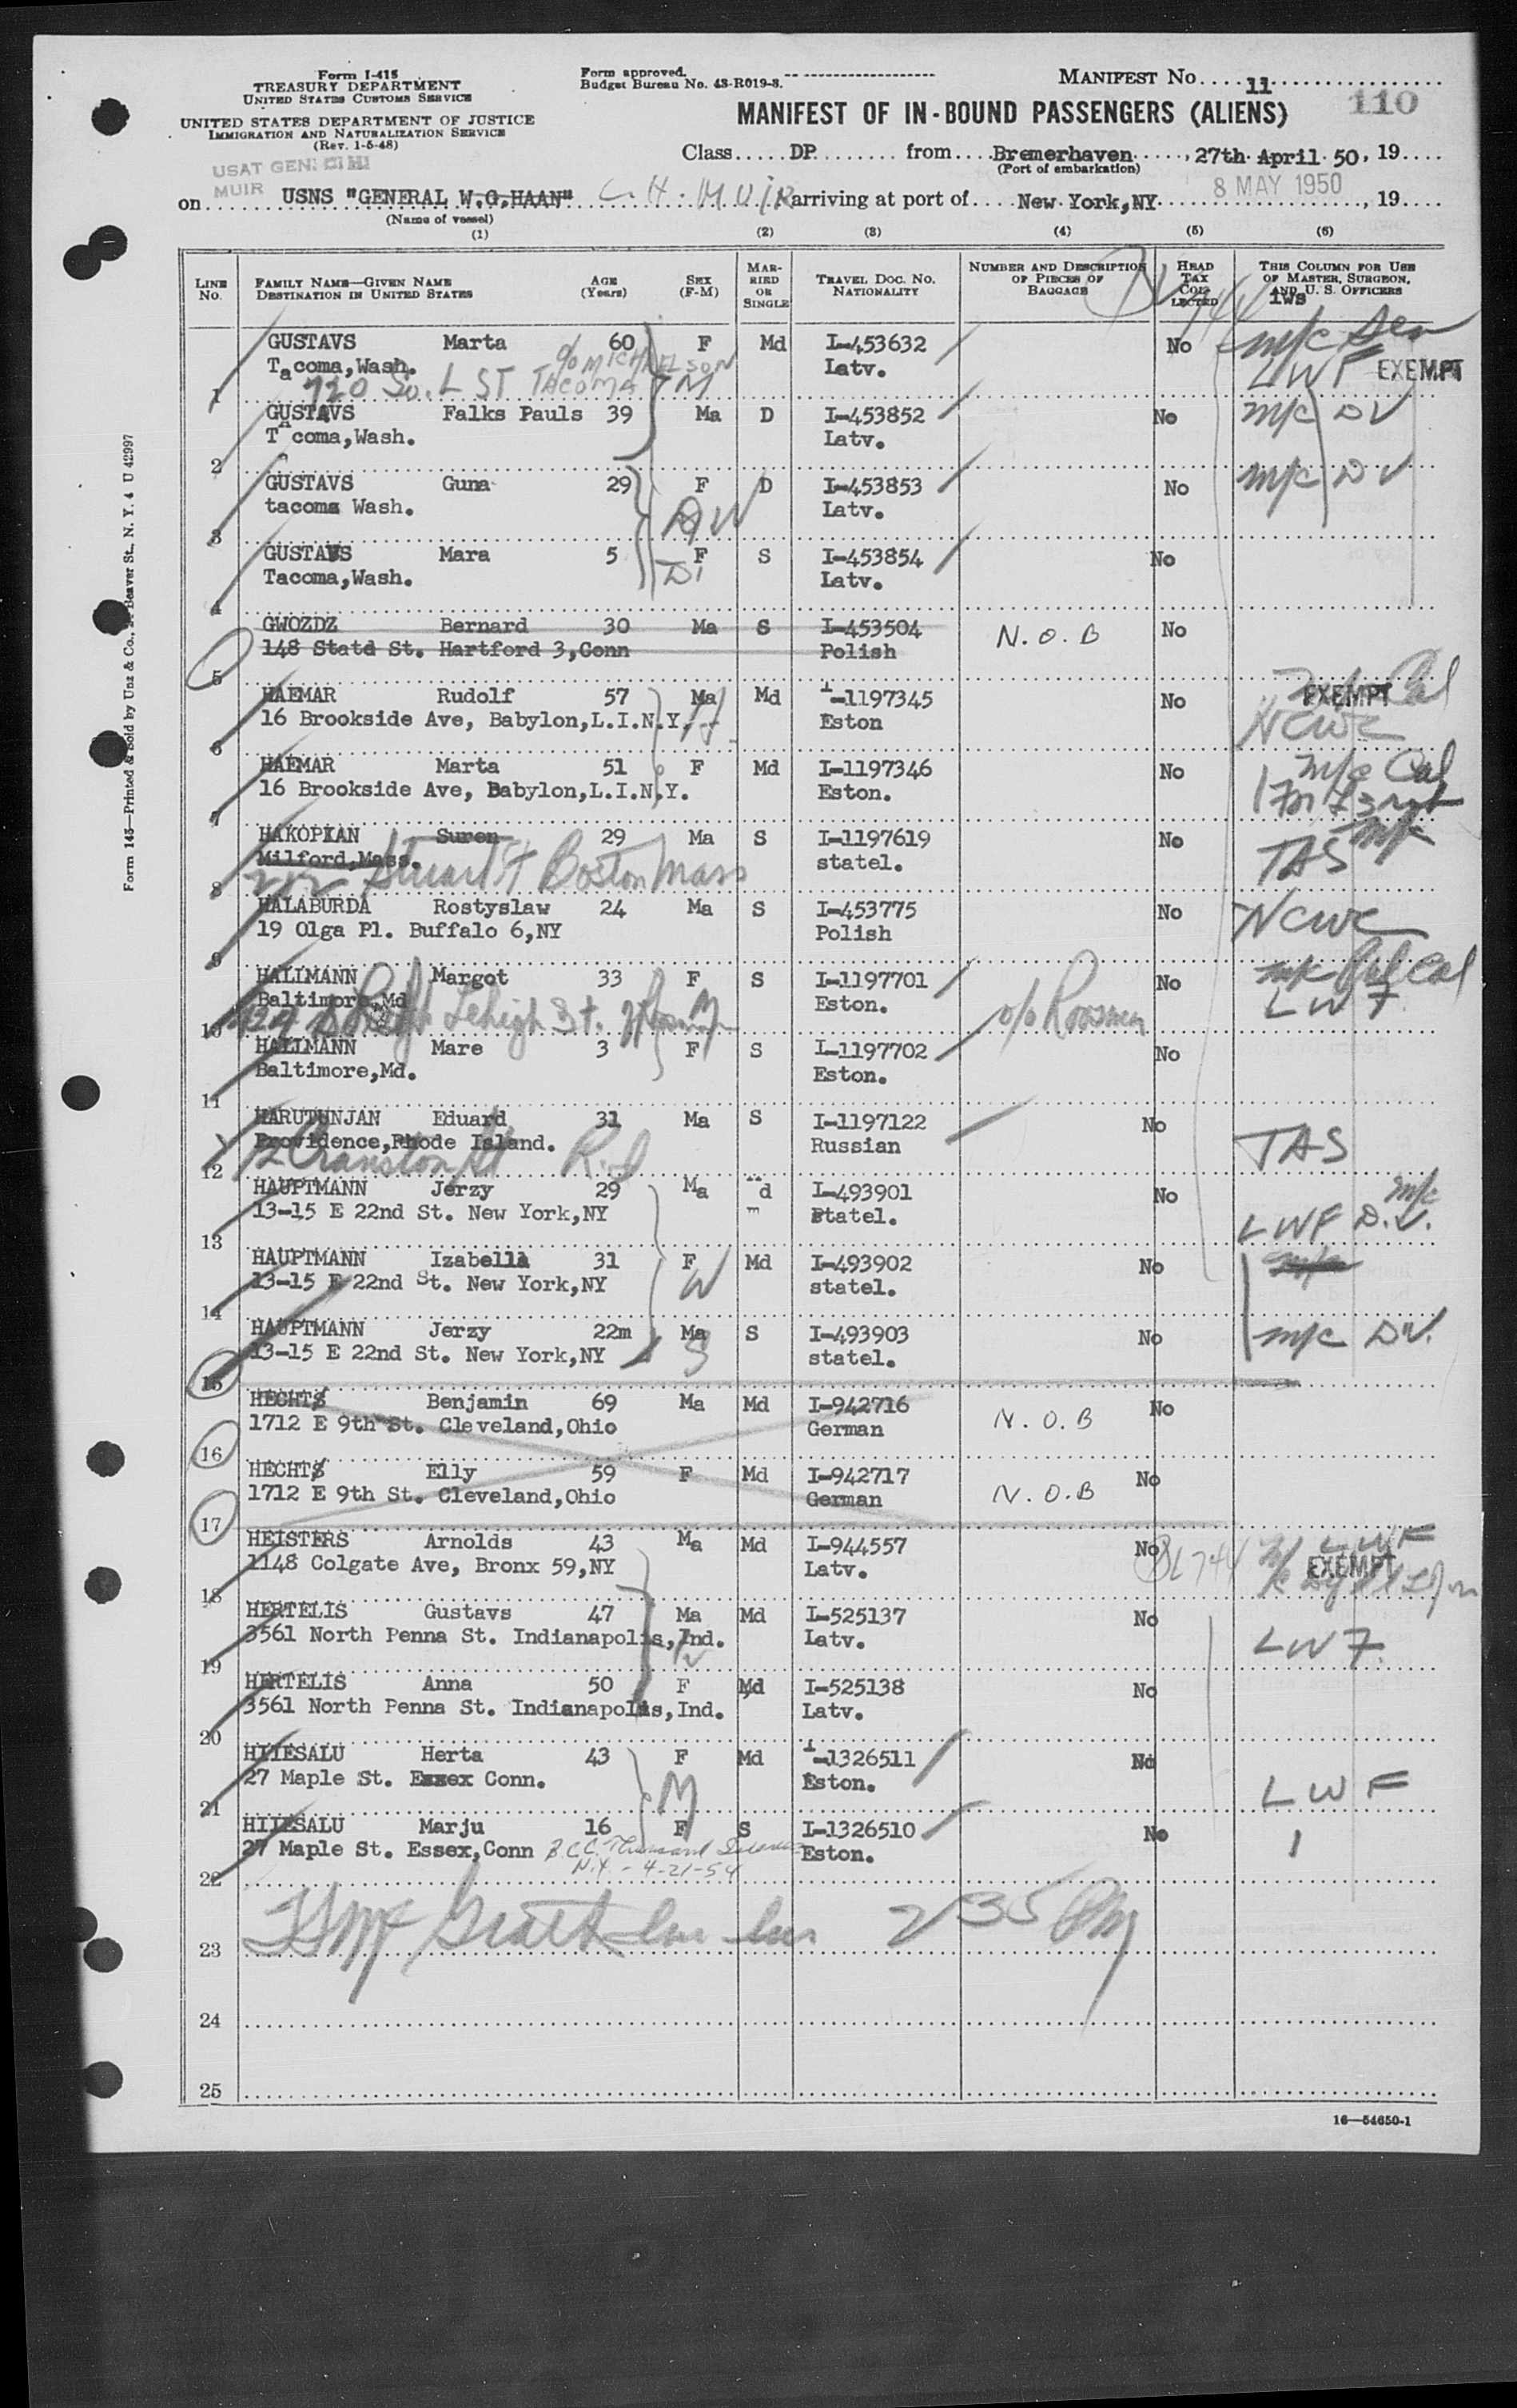 Form I-415
TREASURY DEPARTMENT
UNITED STATES CUSTOMS SERVICE
UNITED STATES DEPARTMENT OF JUSTICE
IMMIGRATION AND NATURALIZATION SERVICE
(Rev. 1-5-48)
Form approved.
Budget Bureau No. 43-R019-3.
MANIFEST No. 11
110
MANIFEST OF IN-BOUND PASSENGERS (ALIENS)
Class DP from Bremerhaven, 27th April 50, 19
(Port of embarkation)
USAT GEN.
MUIR
8 MAY 1950
on USNS "GENERAL W.G.HAAN" C.H. MUIR arriving at port of New York,NY, 19
(Name of vessel)
(1) (2) (3) (4) (5) (6)
LINE No. FAMILY NAME—GIVEN NAME DESTINATION IN UNITED STATES AGE (Years) SEX (F-M) MARRIED OR SINGLE TRAVEL DOC. NO. NATIONALITY NUMBER AND DESCRIPTION OF PIECES OF BAGGAGE HEAD TAX COLLECTED THIS COLUMN FOR USE OF MASTER, SURGEON, AND U. S. OFFICERS
iws
GUSTAVS Marta 60 F Md I-453632 No m/c
Tacoma,Wash. c/o MICHAELSON Latv. LWF EXEMPT
1 720 So. L ST TACOMA M
GUSTAVS Falks Pauls 39 Ma D I-453852 No m/c DV
Tacoma,Wash. Latv.
2
GUSTAVS Guna 29 F D I-453853 No m/c DV
tacoma Wash. Latv.
3
GUSTAVS Mara 5 F S I-453854 No
Tacoma,Wash. Latv.
4
GWOZDZ Bernard 30 Ma S I-453504 N.O.B No
148 Statd St. Hartford 3,Conn Polish
5
HAEMAR Rudolf 57 Ma Md I-1197345 No EXEMPT
16 Brookside Ave, Babylon,L.I.N.Y. Eston NCWC
6
HAEMAR Marta 51 F Md I-1197346 No m/c Cal
16 Brookside Ave, Babylon,L.I.N.Y. Eston.
7
HAKOPIAN Suren 29 Ma S I-1197619 No m/c
Milford,Mass. statel. TAS
8 212 Stuart St Boston Mass
HALABURDA Rostyslaw 24 Ma S I-453775 No NCWC
19 Olga Pl. Buffalo 6,NY Polish
9
HALLMANN Margot 33 F S I-1197701 No m/c Cal
Baltimore,Md Eston. LWF
10 Lehigh St. c/o Roosman
HALLMANN Mare 3 F S I-1197702 No
Baltimore,Md. Eston.
11
HARUTUNJAN Eduard 31 Ma S I-1197122 No
Providence,Rhode Island. Russian TAS
12 Cranston St R.I
HAUPTMANN Jerzy 29 Ma Md I-493901 No m/c
13-15 E 22nd St. New York,NY statel. LWF D.V.
13
HAUPTMANN Izabella 31 F Md I-493902 No
13-15 E 22nd St. New York,NY W statel.
14
HAUPTMANN Jerzy 22m Ma S I-493903 No m/c DV.
13-15 E 22nd St. New York,NY S statel.
15
HECHT Benjamin 69 Ma Md I-942716 N.O.B No
1712 E 9th St. Cleveland,Ohio German
16
HECHT Elly 59 F Md I-942717 N.O.B No
1712 E 9th St. Cleveland,Ohio German
17
HEISTERS Arnolds 43 Ma Md I-944557 No LWF
1148 Colgate Ave, Bronx 59,NY Latv. EXEMPT
18
HERTELIS Gustavs 47 Ma Md I-525137 No
3561 North Penna St. Indianapolis,Ind. Latv. LWF
19
HERTELIS Anna 50 F Md I-525138 No
3561 North Penna St. Indianapolis,Ind. Latv.
20
HIIESALU Herta 43 F Md I-1326511 No
27 Maple St. Essex Conn. M Eston. LWF
21
HIIESALU Marju 16 F S I-1326510 No
27 Maple St. Essex,Conn Eston.
22 N.Y. - 4-21-54
23 235 PM
24
25
16—54650-1
Form 145—Printed & Sold by Unz & Co., Beaver St., N. Y. 4 U 42997